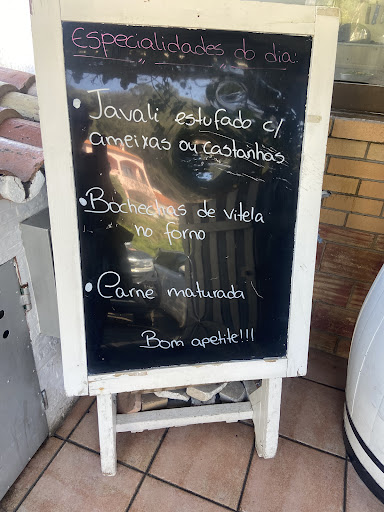 Especialidades do dia:
• Javali estufado c/
ameixas ou castanhas
• Bochechas de vitela
no forno
• Carne maturada
Bom apetite!!!